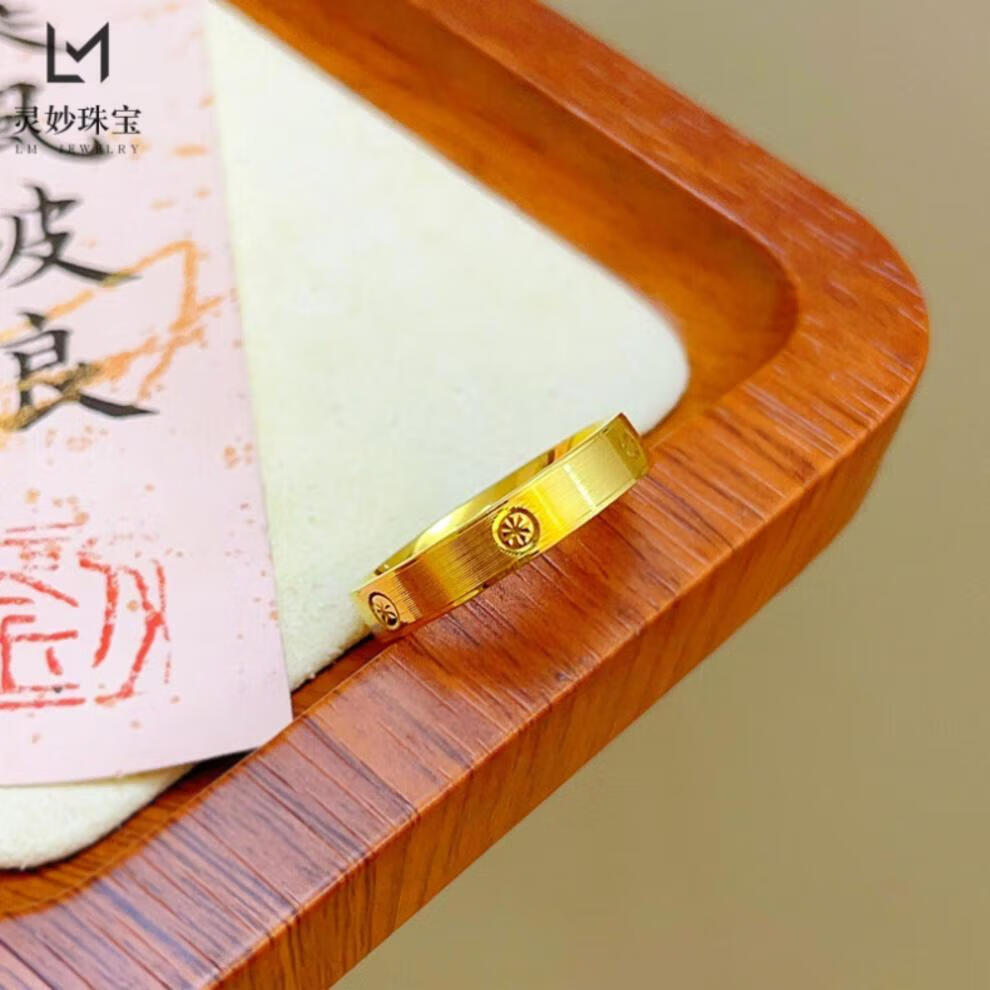 LM
灵妙珠宝
LM JEWELRY
波
良